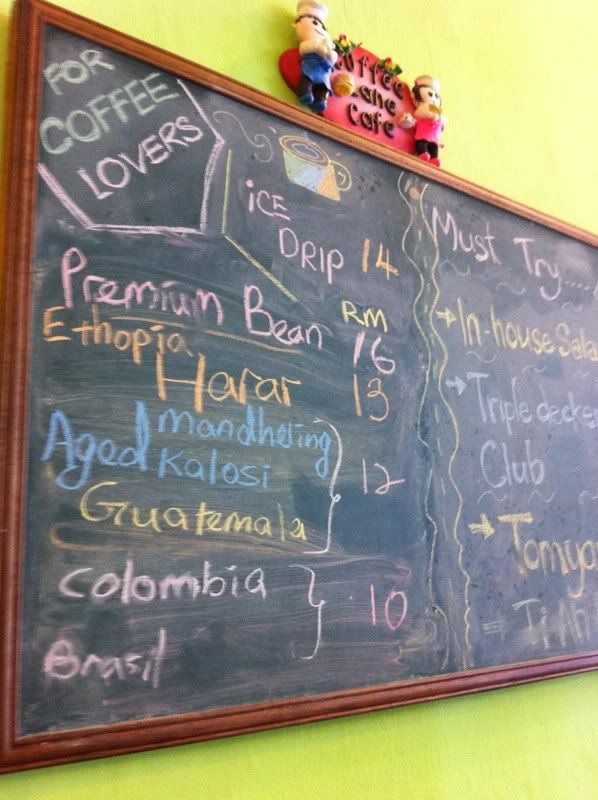 Coffee
Lane
Cafe
FOR
COFFEE
LOVERS
iCE
DRIP 14
RM
Premium Bean 16
Ethopia
Harar 13
Aged Mandheling
Kalosi 12
Guatemala
Colombia
10
Brasil
Must Try....
In-house Sala
Triple decker
Club
Tomya